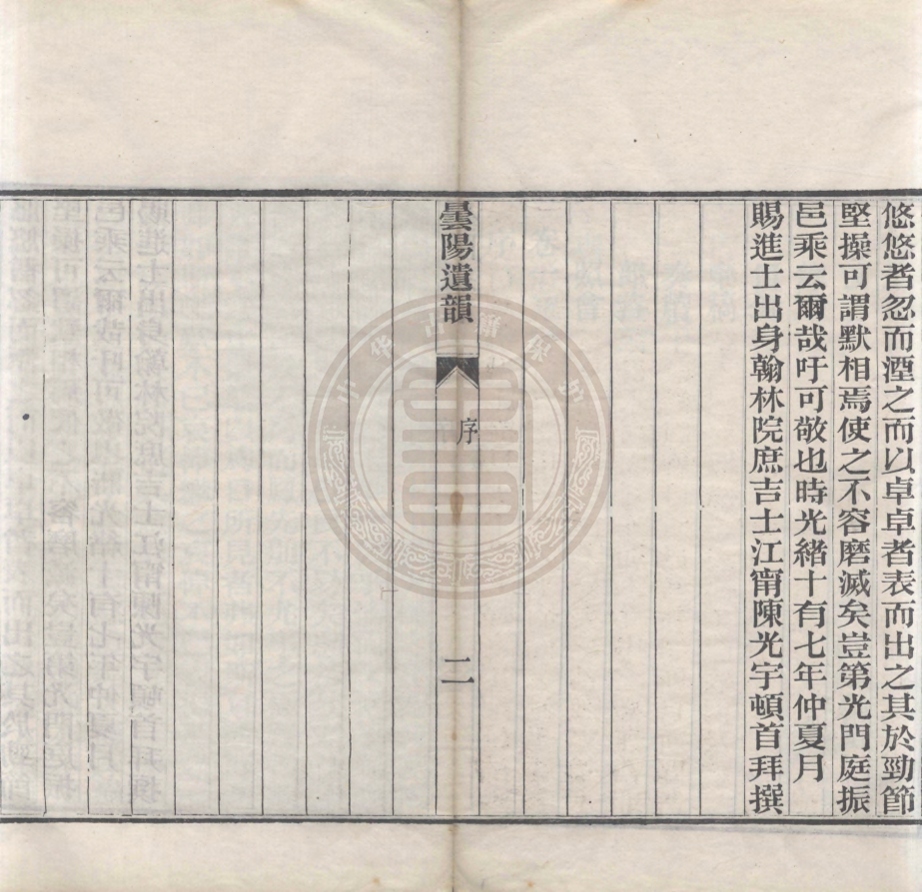 悠悠者忽而湮之而以卓卓者表而出之其於勁節
堅操可謂默相焉使之不容磨滅矣豈第光門庭振
邑乘云爾哉吁可敬也時光緒十有七年仲夏月
賜進士出身翰林院庶吉士江甯陳光宇頓首拜撰
曇陽遺韻
序
二